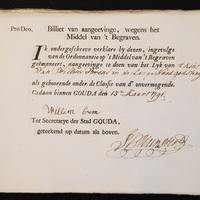 PRO DEO, Billiet van aangeevinge, wegens het
Middel van 't Begraven.
Ik ondergeschreve verklare by dezen, ingevolge
van de Ordonnantie op 't Middel van 't Begraven
geëmaneert, aangevinge te doen van het Lyk van
Van Willem
als gehoorende onder de Classis van d' onvermogende.
Gedaan binnen GOUDA den 13 Maart 1791
Willem
Ter Secretarye der Stad GOUDA,
geteekend op datum als boven.